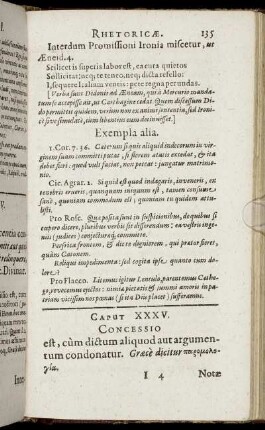 RHETORICÆ. 135
Interdum Promissioni Ironia miscetur, ut
Æneid. 4.
Scilicet is superis labor est, ea cura quietos
Sollicitat: neq; te teneo, neq; dicta refello:
I, sequere Italiam ventis: pete regna per undas.
[Verba sunt Didonis ad Æneam, qui à Mercurio mandatum
se accepisse ait, ut Carthagine cedat. Quem discessum Dido
permittit quidem, verùm non ex animi sententia, sed ironicè
Exempla alia.
1. Cor. 7. 36. Caterum siquis aliquid indecorum in virginem
suam committi putat, si florem ætatis excedat, & ita
debet fieri: quod vult faciat, non peccat: jungatur matrimonio.
Cic. Agrar. 2. Si quid est quod indagaris, inveneris, ex
tenebris erueris, quanquam iniquum est, tamen consume
sanè, quoniam commodum est; quoniam
Pro Rosc. Quæ posita sunt in suspitionibus, de quibus si
cupero dicere, pluribus verbis sit disserendum: ea vestris ingeniis
(judices) conjecturáq; committo.
& dicto deguiorem, qui prator fieret,
quàm Catonem.
Reliqua impedimenta: sed cogita ipse, quanto cum dolore.
Pro Flacco. Licenus igitur Lentulo, parentemus Cethego,
revocemus ejectos: nimia pietatis & summi amoris in patriam
vicissim nos pœnas (si ita Diis placet) sufferamus.
CAPUT XXXV.
CONCESSIO
est, cùm dictum aliquod aut argumentum
condonatur. Græcè dicitur παρομολογία.
I 4 Notæ